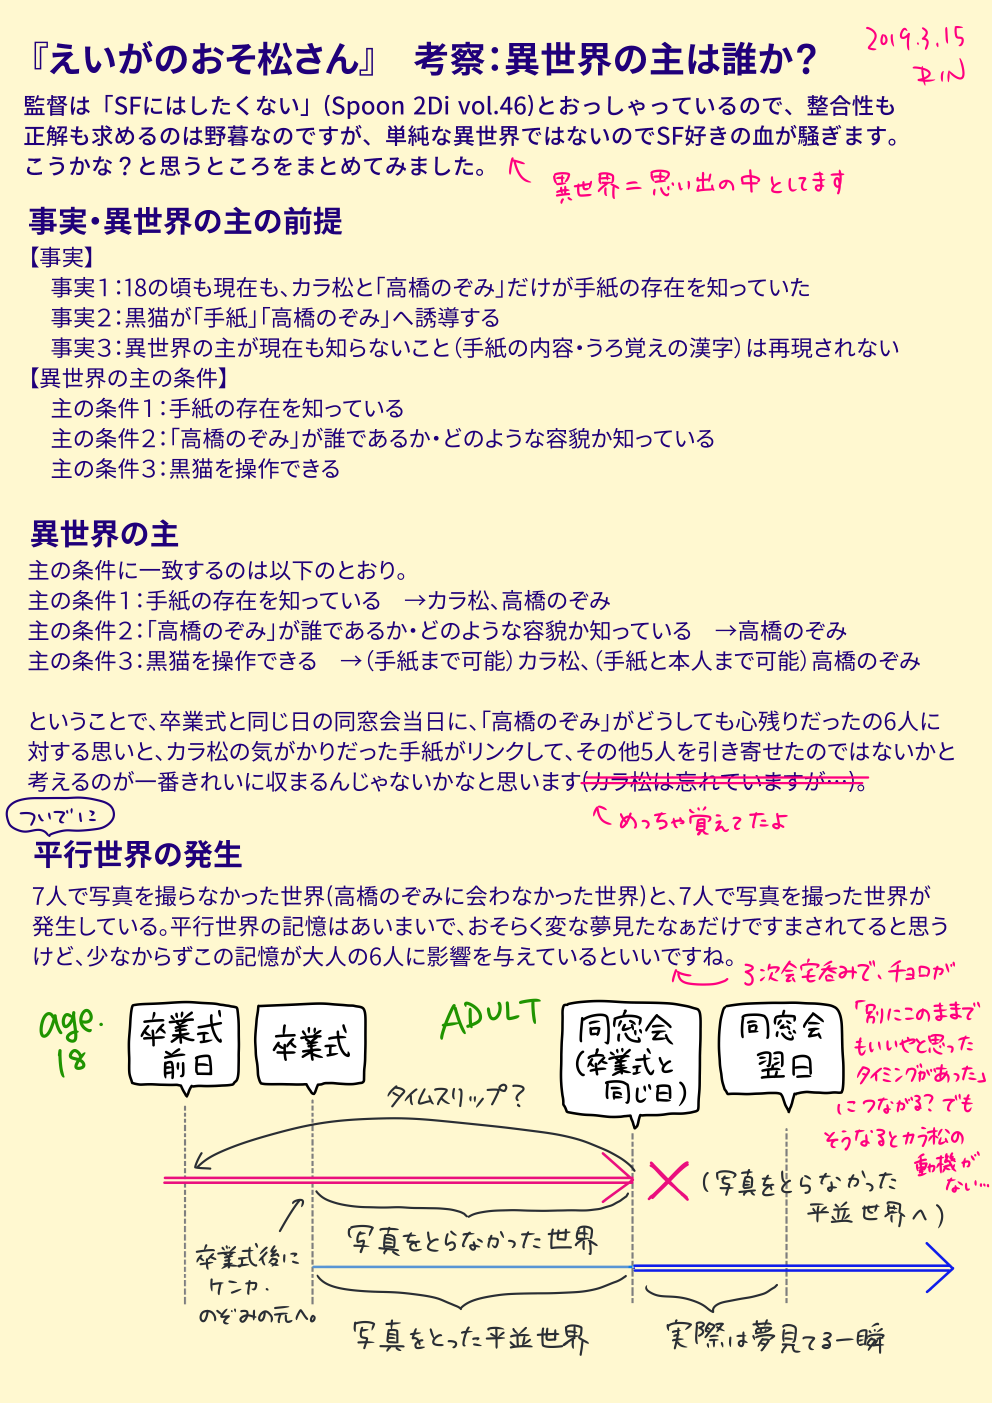 『えいがのおそ松さん』　考察：異世界の主は誰か？
2019.3.15
RIN
監督は「SFにはしたくない」(Spoon 2Di vol.46)とおっしゃっているので、整合性も
正解も求めるのは野暮なのですが、単純な異世界ではないのでSF好きの血が騒ぎます。
こうかな？と思うところをまとめてみました。
異世界＝思い出の中としてます
事実・異世界の主の前提
【事実】
事実１：18の頃も現在も、カラ松と「高橋のぞみ」だけが手紙の存在を知っていた
事実２：黒猫が「手紙」「高橋のぞみ」へ誘導する
事実３：異世界の主が現在も知らないこと（手紙の内容・うろ覚えの漢字）は再現されない
【異世界の主の条件】
主の条件１：手紙の存在を知っている
主の条件２：「高橋のぞみ」が誰であるか・どのような容貌か知っている
主の条件３：黒猫を操作できる
異世界の主
主の条件に一致するのは以下のとおり。
主の条件１：手紙の存在を知っている　→カラ松、高橋のぞみ
主の条件２：「高橋のぞみ」が誰であるか・どのような容貌か知っている　→高橋のぞみ
主の条件３：黒猫を操作できる　→（手紙まで可能）カラ松、（手紙と本人まで可能）高橋のぞみ
ということで、卒業式と同じ日の同窓会当日に、「高橋のぞみ」がどうしても心残りだったの6人に
対する思いと、カラ松の気がかりだった手紙がリンクして、その他5人を引き寄せたのではないかと
考えるのが一番きれいに収まるんじゃないかなと思います(カラ松は忘れていますが…)。
めっちゃ覚えてたよ
ついでに
平行世界の発生
7人で写真を撮らなかった世界(高橋のぞみに会わなかった世界)と、7人で写真を撮った世界が
発生している。平行世界の記憶はあいまいで、おそらく変な夢見たなぁだけですまされてると思う
けど、少なからずこの記憶が大人の6人に影響を与えているといいですね。
3次会宅呑みで、チョロが
「別にこのままで
もいいやと思った
タイミングがあった」
につながる？でも
そうなるとカラ松の
動機が
ない…
age.
18
卒業式
前日
卒業式
ADULT
同窓会
(卒業式と
同じ日)
同窓会
翌日
タイムスリップ？
(写真をとらなかった
平並世界へ)
写真をとらなかった世界
卒業式後に
ケンカ.
のぞみの元へ。
写真をとった平並世界
実際は夢見てる一瞬